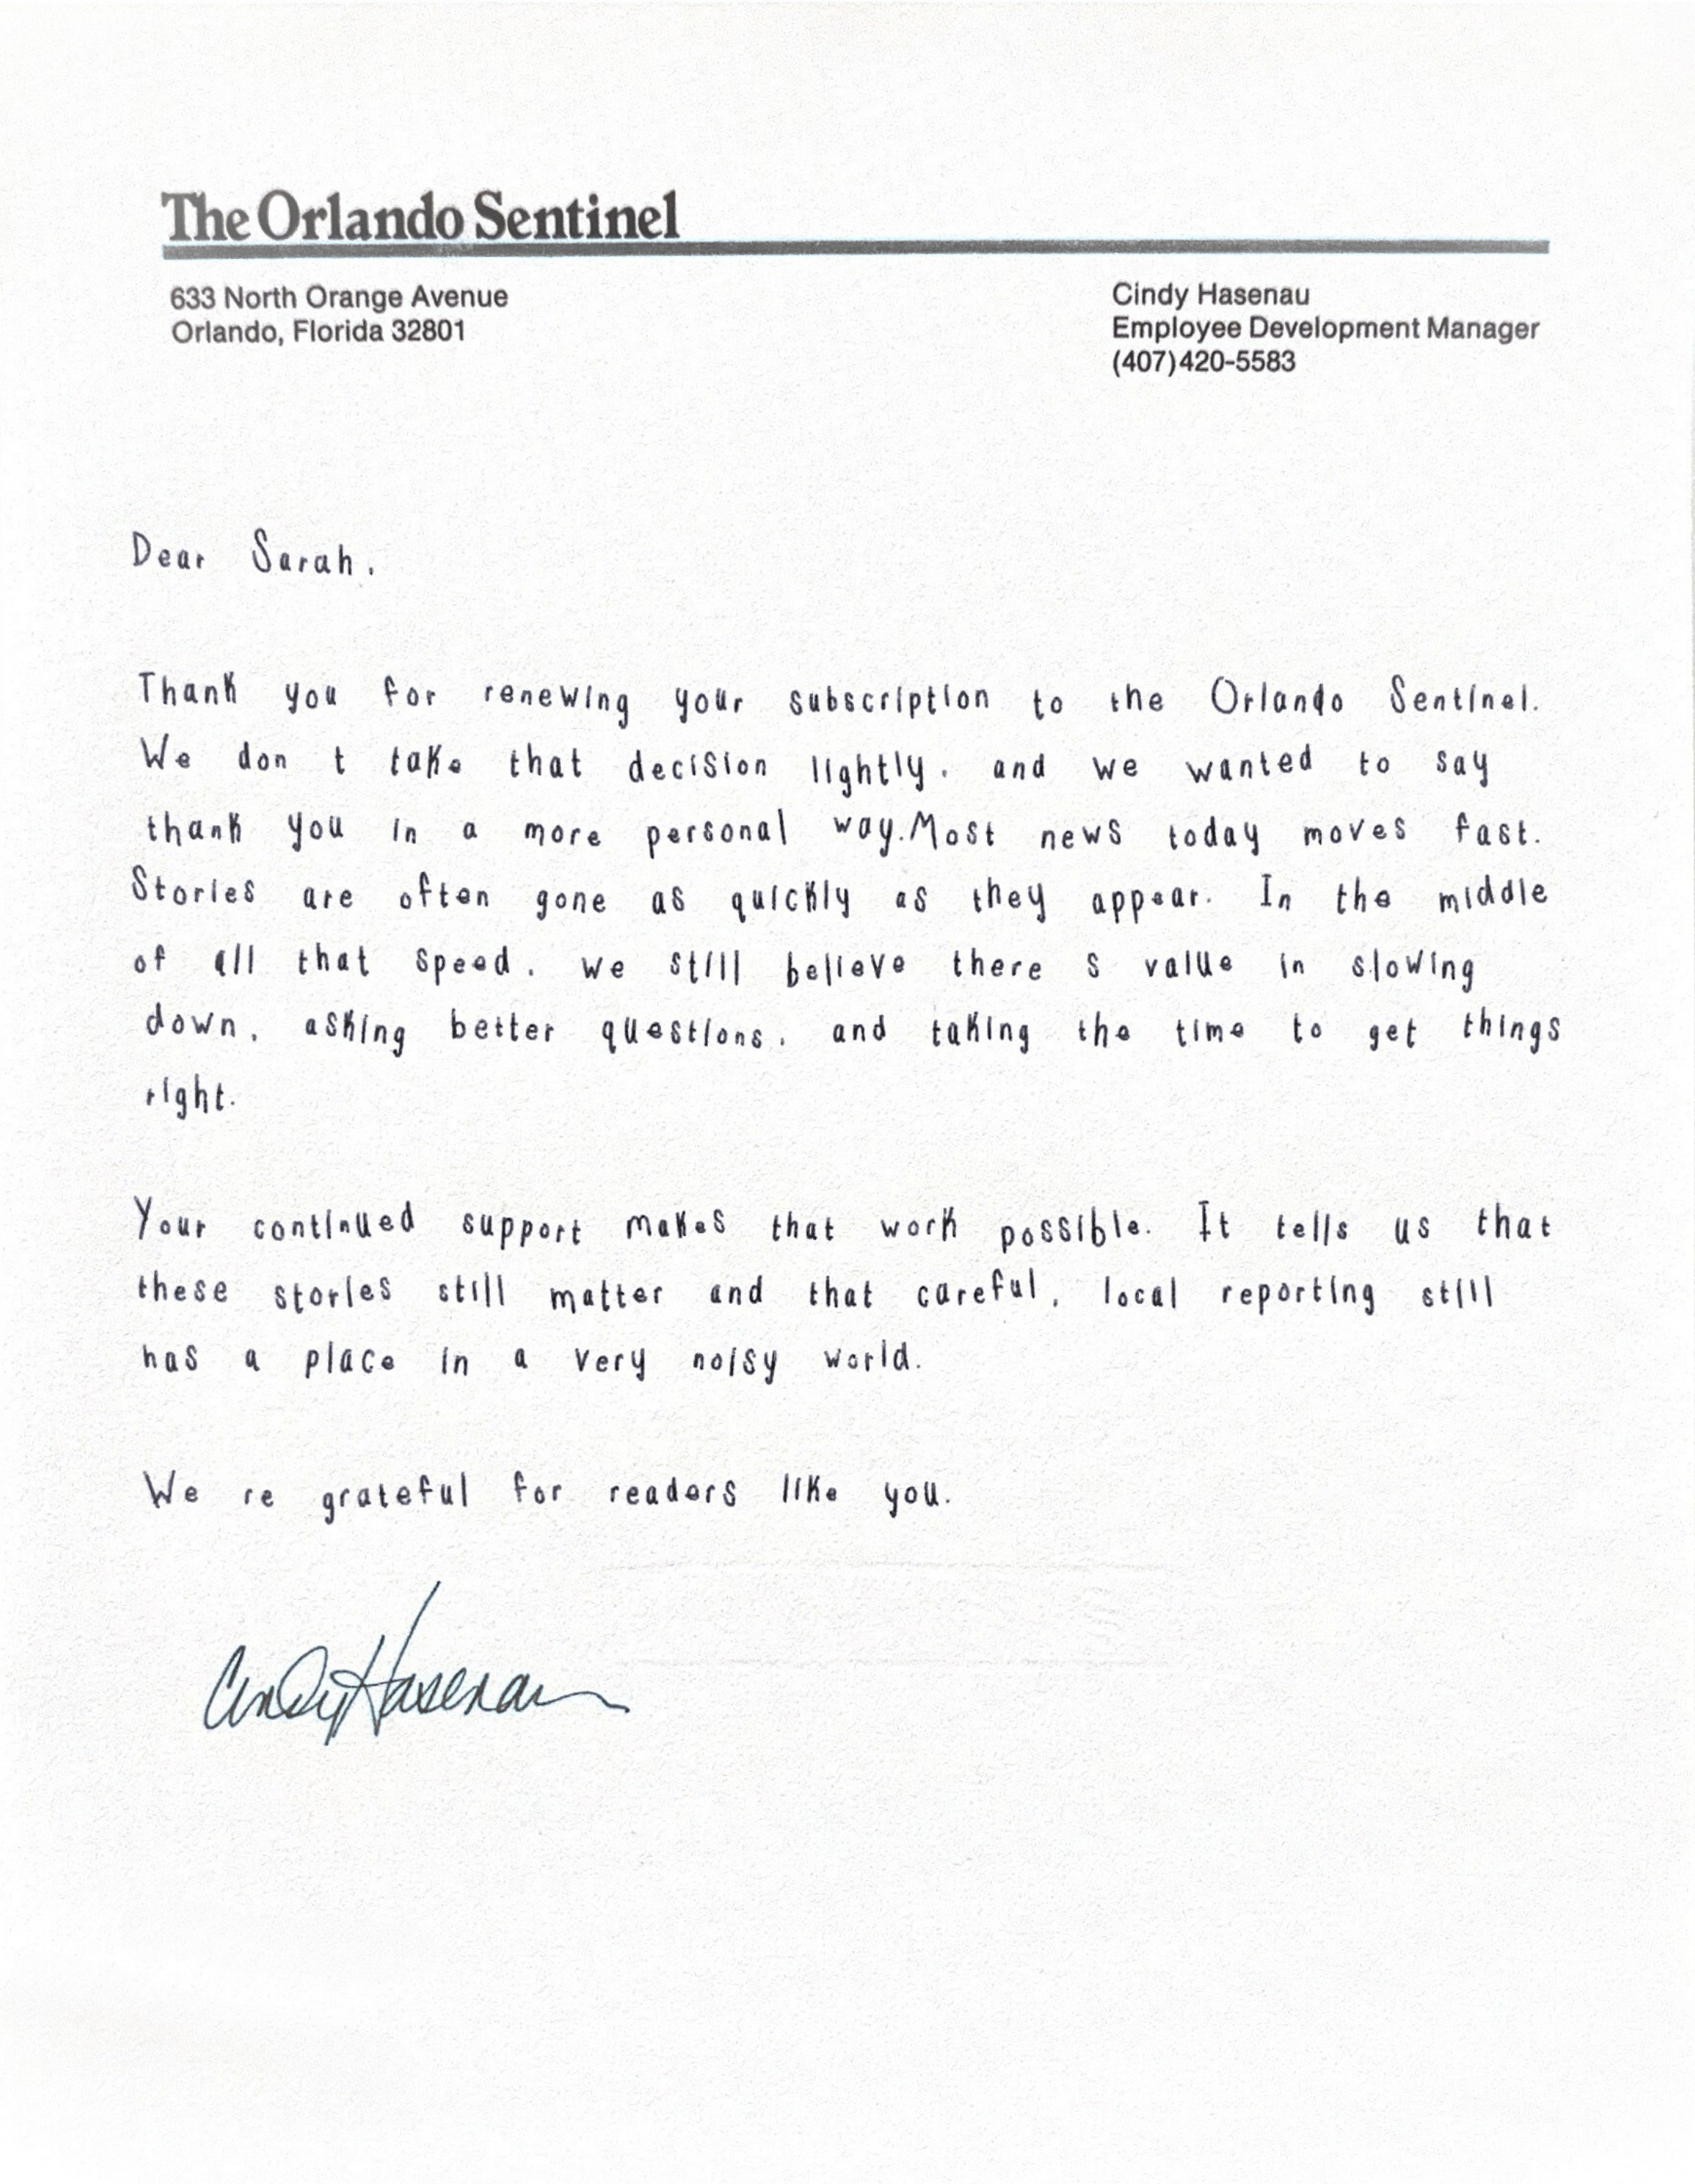 The Orlando Sentinel
633 North Orange Avenue
Orlando, Florida 32801
Cindy Hasenau
Employee Development Manager
(407)420-5583
Dear Sarah,
Thank you for renewing your subscription to the Orlando Sentinel.
We don t take that decision lightly, and we wanted to say
thank you in a more personal way.Most news today moves fast.
Stories are often gone as quickly as they appear. In the middle
of all that speed, we still believe there s value in slowing
down, asking better questions, and taking the time to get things
right.
Your continued support makes that work possible. It tells us that
these stories still matter and that careful, local reporting still
has a place in a very noisy world.
We re grateful for readers like you.
Cindy Hasenau